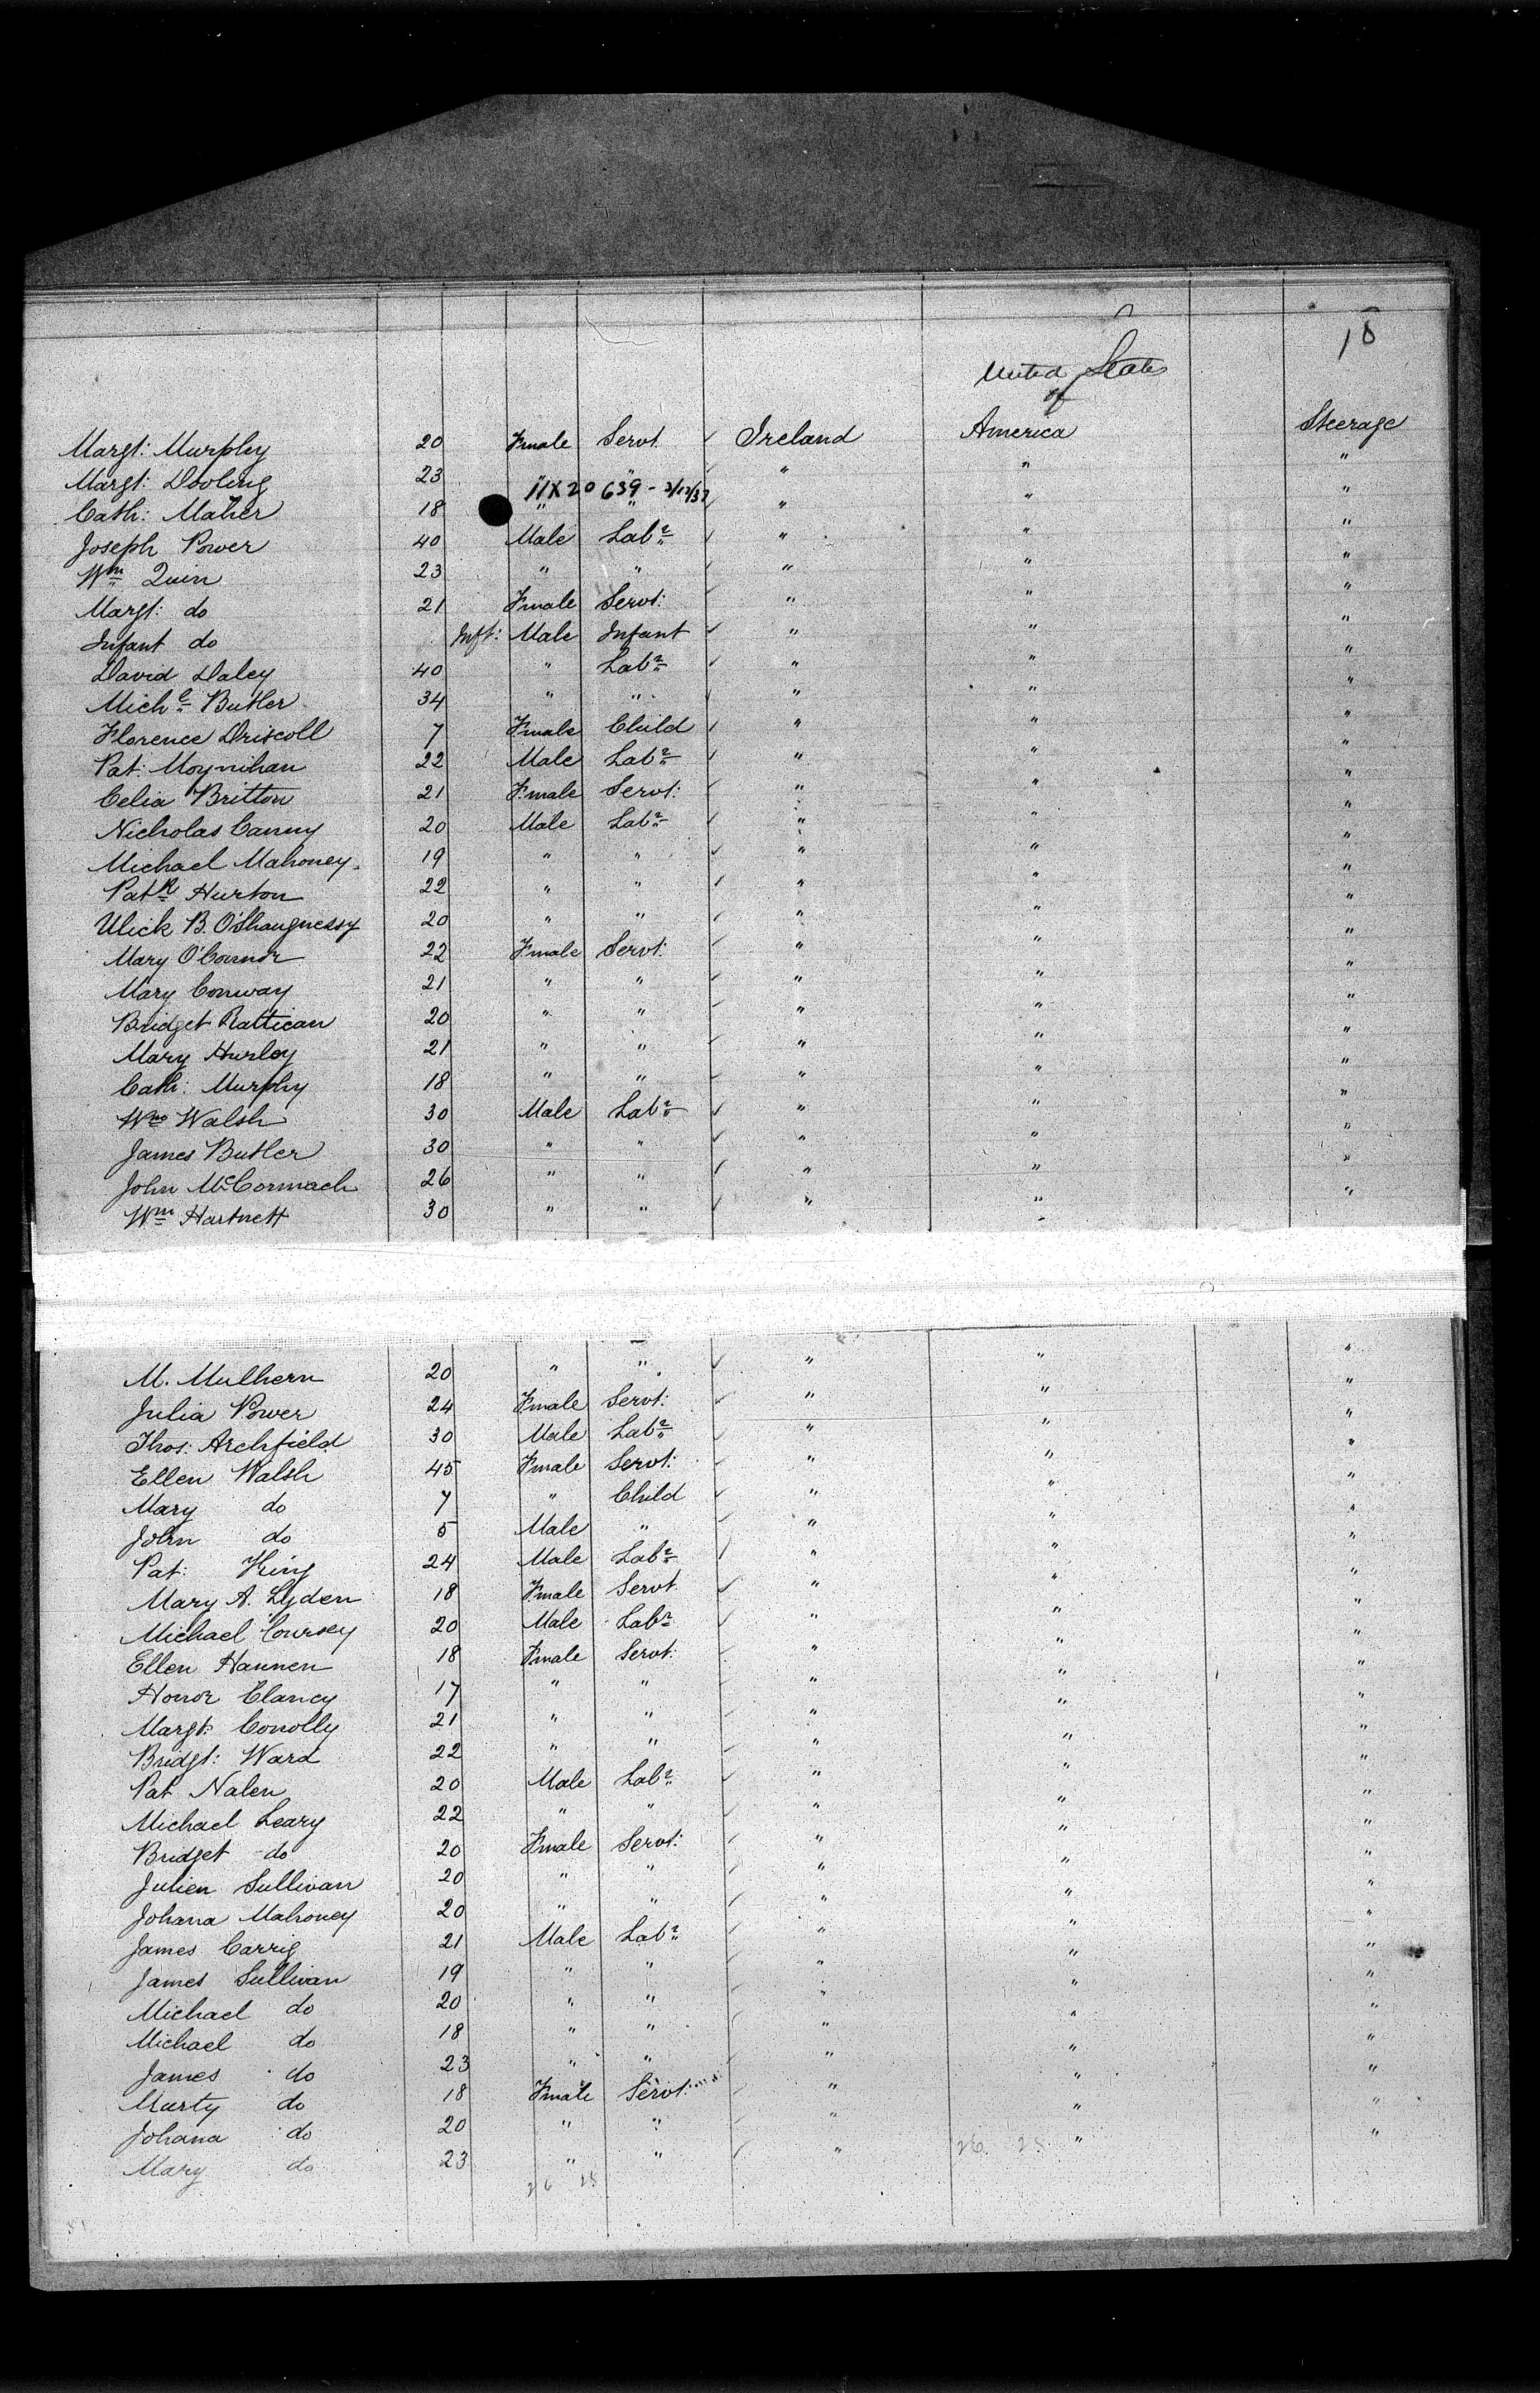 18
United States
of
Margt: Murphy 20 Female Servt. ✓ Ireland America Steerage
Margt: Dooling 23 " " ✓ " " "
11X20 639 - 2/12/37
Cath: Maher 18 " " ✓ " " "
Joseph Power 40 Male Labr ✓ " " "
Wm Quin 23 " " ✓ " " "
Margt: do 21 Female Servt: ✓ " " "
Infant do Inft: Male Infant ✓ " " "
David Daley 40 " Labr ✓ " " "
Michl Butler 34 " " ✓ " " "
Florence Driscoll 7 Female Child ✓ " " "
Pat: Moynihan 22 Male Labr ✓ " " "
Celia Britton 21 Female Servt: ✓ " " "
Nicholas Canny 20 Male Labr ✓ " " "
Michael Mahoney 19 " " ✓ " " "
Patk Hurton 22 " " ✓ " " "
Ulick B. O'Shaugnessy 20 " " ✓ " " "
Mary O'Connor 22 Female Servt: ✓ " " "
Mary Conway 21 " " ✓ " " "
Bridget Rattican 20 " " ✓ " " "
Mary Hurley 21 " " ✓ " " "
Cath: Murphy 18 " " ✓ " " "
Wm Walsh 30 Male Labr ✓ " " "
James Butler 30 " " ✓ " " "
John McCormack 26 " " ✓ " " "
Wm Hartnett 30 " " ✓ " " "
M. Mulhern 20 " " ✓ " " "
Julia Power 24 Female Servt: ✓ " " "
Thos: Archfield 30 Male Labr ✓ " " "
Ellen Walsh 45 Female Servt: ✓ " " "
Mary do 7 " Child ✓ " " "
John do 5 Male " ✓ " " "
Pat: King 24 Male Labr ✓ " " "
Mary A. Lyden 18 Female Servt ✓ " " "
Michael Coursey 20 Male Labr ✓ " " "
Ellen Hannen 18 Female Servt: ✓ " " "
Honor Clancy 17 " " ✓ " " "
Margt: Conolly 21 " " ✓ " " "
Bridgt: Ward 22 " " ✓ " " "
Pat Nalen 20 Male Labr ✓ " " "
Michael Leary 22 " " ✓ " " "
Bridget do 20 Female Servt: ✓ " " "
Julien Sullivan 20 " " ✓ " " "
Johana Mahoney 20 " " ✓ " " "
James Carrig 21 Male Labr ✓ " " "
James Sullivan 19 " " ✓ " " "
Michael do 20 " " ✓ " " "
Michael do 18 " " ✓ " " "
James do 23 " " ✓ " " "
Murty do 18 Female Servt: ✓ " " "
Johana do 20 " " ✓ " " "
Mary do 23 " " ✓ " " "
26 25
26 25
51